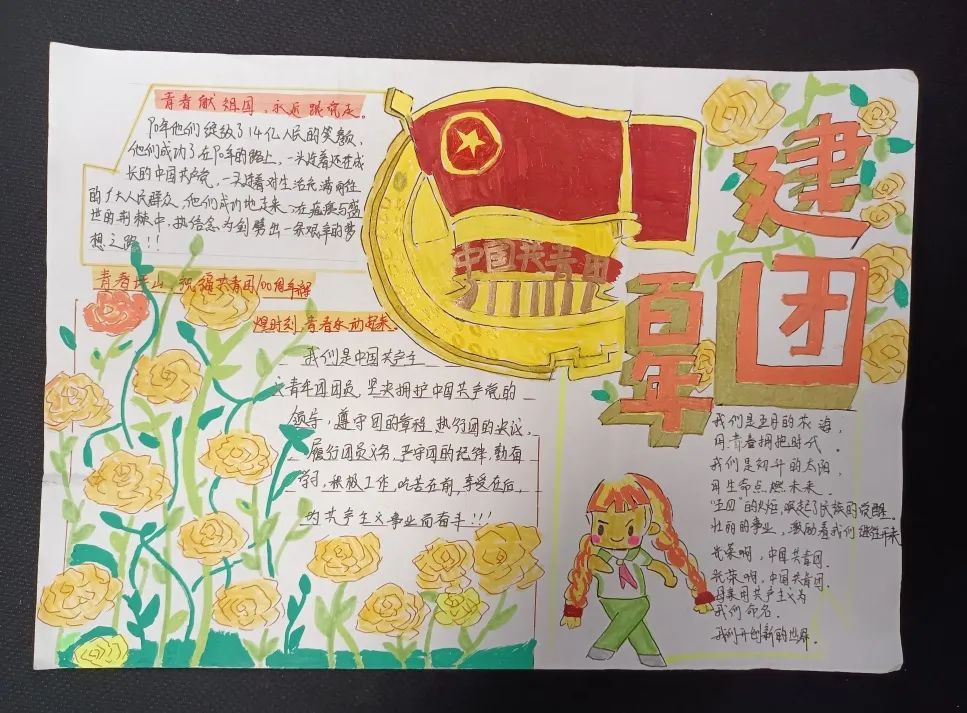 青春献祖国,永远跟党走。
他们经极了14亿人民的笑貌,
他们成功了在90年的路上,一头连着还在成
长的中国共产党,一头连着对生活充满向往
的广大人民群众,他们成功地走来,在
世的荆棘中,执信念为剑劈出一条艰辛的梦
想之路!!
青春 祝福共青团100周年辉
煌时刻,青春永动起来。
我们是中国共产主
义青年团团员,坚决拥护中国共产党的
领导,遵守团的章程,执行团的决议,
履行团员义务,严守团的纪律,勤奋
学习,积极工作,吃苦在前,享受在后,
为共产主义事业而奋斗!!!
中国共青团
建团
百年
我们是五月的花海,
用青春拥抱时代。
我们是初升的太阳,
用生命点燃未来。
"五四"的火炬,唤起了民族的觉醒。
壮丽的事业,激励着我们继往开来
光荣啊,中国共青团。
光荣啊,中国共青团。
母亲用共产主义为
我们命名。
我们开创新的世界。